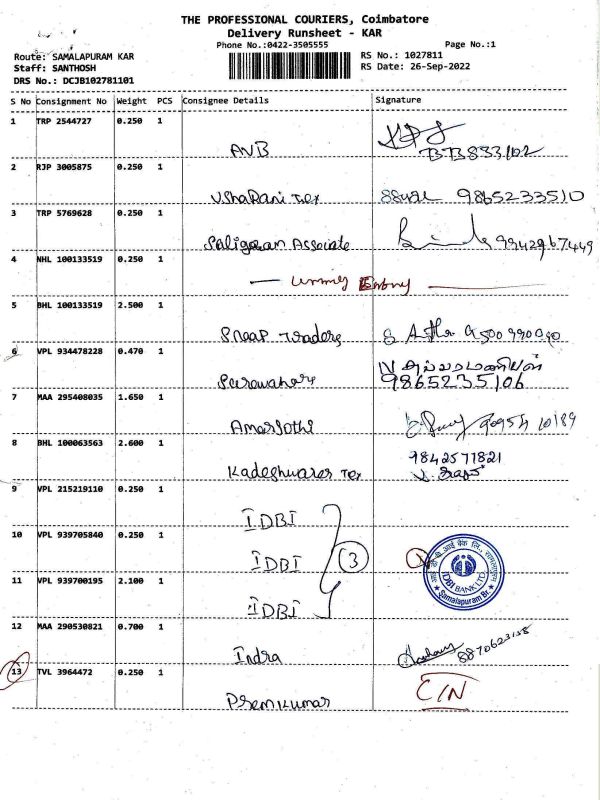 THE PROFESSIONAL COURIERS, Coimbatore
Delivery Runsheet - KAR
Phone No.:0422-3505555 Page No.:1
Route: SAMALAPURAM KAR RS No.: 1027811
Staff: SANTHOSH RS Date: 26-Sep-2022
DRS No.: DCJB102781101
S No Consignment No Weight PCS Consignee Details Signature
1 TRP 2544727 0.250 1
AVB BB833/02
2 RJP 3005875 0.250 1
UshaRani Tex 9865233510
3 TRP 5769628 0.250 1
Associate 9942967449
4 NHL 100133519 0.250 1
5 BHL 100133519 2.500 1
Traders
6 VPL 934478228 0.470 1
9865235106
7 MAA 295408035 1.650 1
AmarJothi
8 BHL 100063563 2.600 1 9842571821
Kadeshwarer Tex
9 VPL 215219110 0.250 1
IDBI
10 VPL 939705840 0.250 1
IDBI 3
IDBI BANK LTD.
Samalapuram Br.
11 VPL 939700195 2.100 1
IDBI
12 MAA 290530821 0.700 1
Indra 8870623158
13 TVL 3964472 0.250 1
C/N
Premkumar